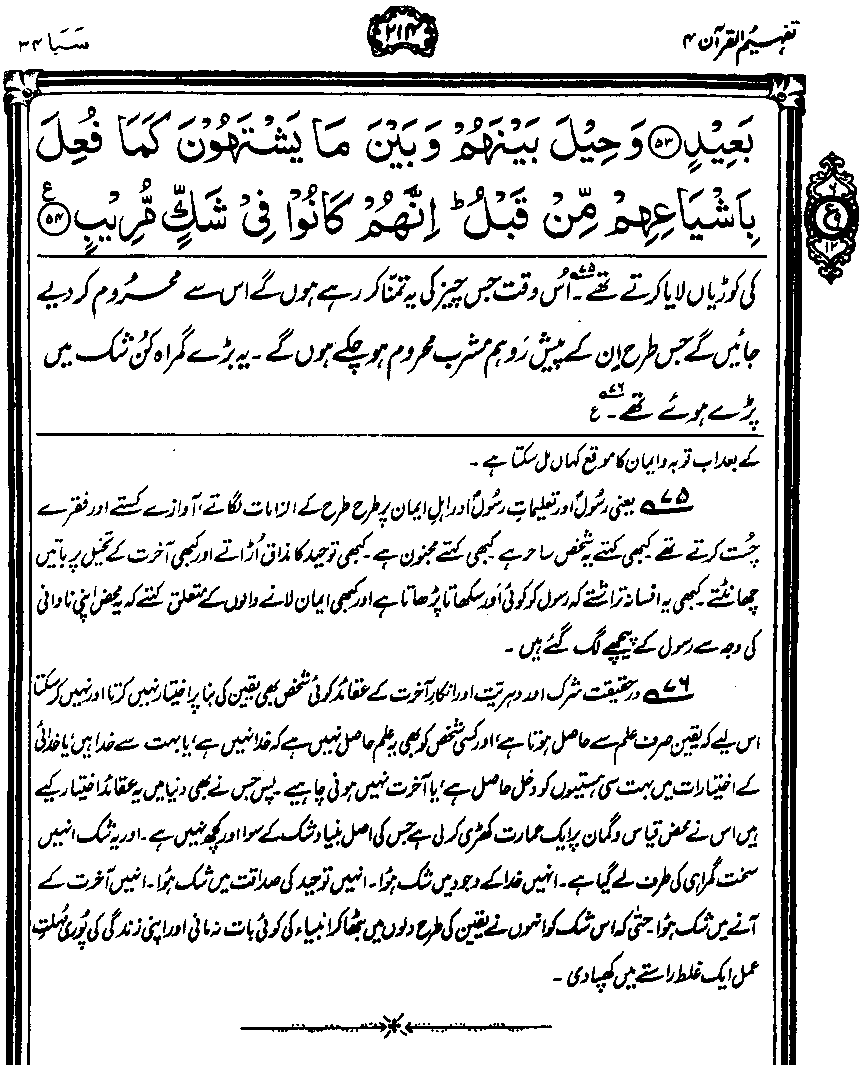 تفہیم القرآن ۴
۲۱۴
سَبَا ۳۴
بَعِيْدٍ ﴿۵۳﴾ وَحِيْلَ بَيْنَهُمْ وَبَيْنَ مَا يَشْتَهُوْنَ كَمَا فُعِلَ
بِاَشْيَاعِهِمْ مِّنْ قَبْلُ ؕ اِنَّهُمْ كَانُوْا فِيْ شَكٍّ مُّرِيْبٍ ﴿۵۴﴾ ع
۶
ع
۱۲
کی کوڑیاں لایا کرتے تھے۷۵۔ اُس وقت جس چیز کی یہ تمنّا کر رہے ہوں گے اس سے محروم کر دیے
جائیں گے جس طرح اِن کے پیش رَو ہم مشرب محروم ہو چکے ہوں گے۔ یہ بڑے گمراہ کُن شک میں
پڑے ہوئے تھے۷۶۔ ع
کے بعد اب توبہ و ایمان کا موقع کہاں مل سکتا ہے۔
۷۵ یعنی رسُولؐ اور تعلیماتِ رسُولؐ اور اہلِ ایمان پر طرح طرح کے الزامات لگاتے، آوازے کستے اور فقرے
چُست کرتے تھے۔ کبھی کہتے یہ شخص ساحر ہے کبھی کہتے مجنون ہے۔ کبھی توحید کا مذاق اُڑاتے اور کبھی آخرت کے تخیّل پر باتیں
چھانٹتے۔ کبھی یہ افسانہ تراشتے کہ رسول کو کوئی اَور سکھاتا پڑھاتا ہے اور کبھی ایمان لانے والوں کے متعلق کہتے کہ یہ محض اپنی نادانی
کی وجہ سے رسول کے پیچھے لگ گئے ہیں۔
۷۶ درحقیقت شرک اور دہریت اور انکارِ آخرت کے عقائد کوئی شخص بھی یقین کی بنا پر اختیار نہیں کرتا اور نہیں کر سکتا
اس لیے کہ یقین صرف علم سے حاصل ہوتا ہے، اور کسی شخص کو بھی یہ علم حاصل نہیں ہے کہ خدا نہیں ہے، یا بہت سے خدا ہیں، یا خدائی
کے اختیارات میں بہت سی ہستیوں کو دخل حاصل ہے، یا آخرت نہیں ہونی چاہیے۔ پس جس نے بھی دنیا میں یہ عقائد اختیار کیے
ہیں اس نے محض قیاس و گمان پر ایک عمارت کھڑی کر لی ہے جس کی اصل بنیاد شک کے سوا اور کچھ نہیں ہے۔ اور یہ شک انہیں
سخت گمراہی کی طرف لے گیا ہے۔ انہیں خدا کے وجود میں شک ہؤا۔ انہیں توحید کی صداقت میں شک ہؤا۔ انہیں آخرت کے
آنے میں شک ہؤا۔ حتیٰ کہ اس شک کو انھوں نے یقین کی طرح دلوں میں بٹھا کر انبیاء کی کوئی بات نہ مانی اور اپنی زندگی کی پُوری مُہلتِ
عمل ایک غلط راستے میں کھپا دی۔